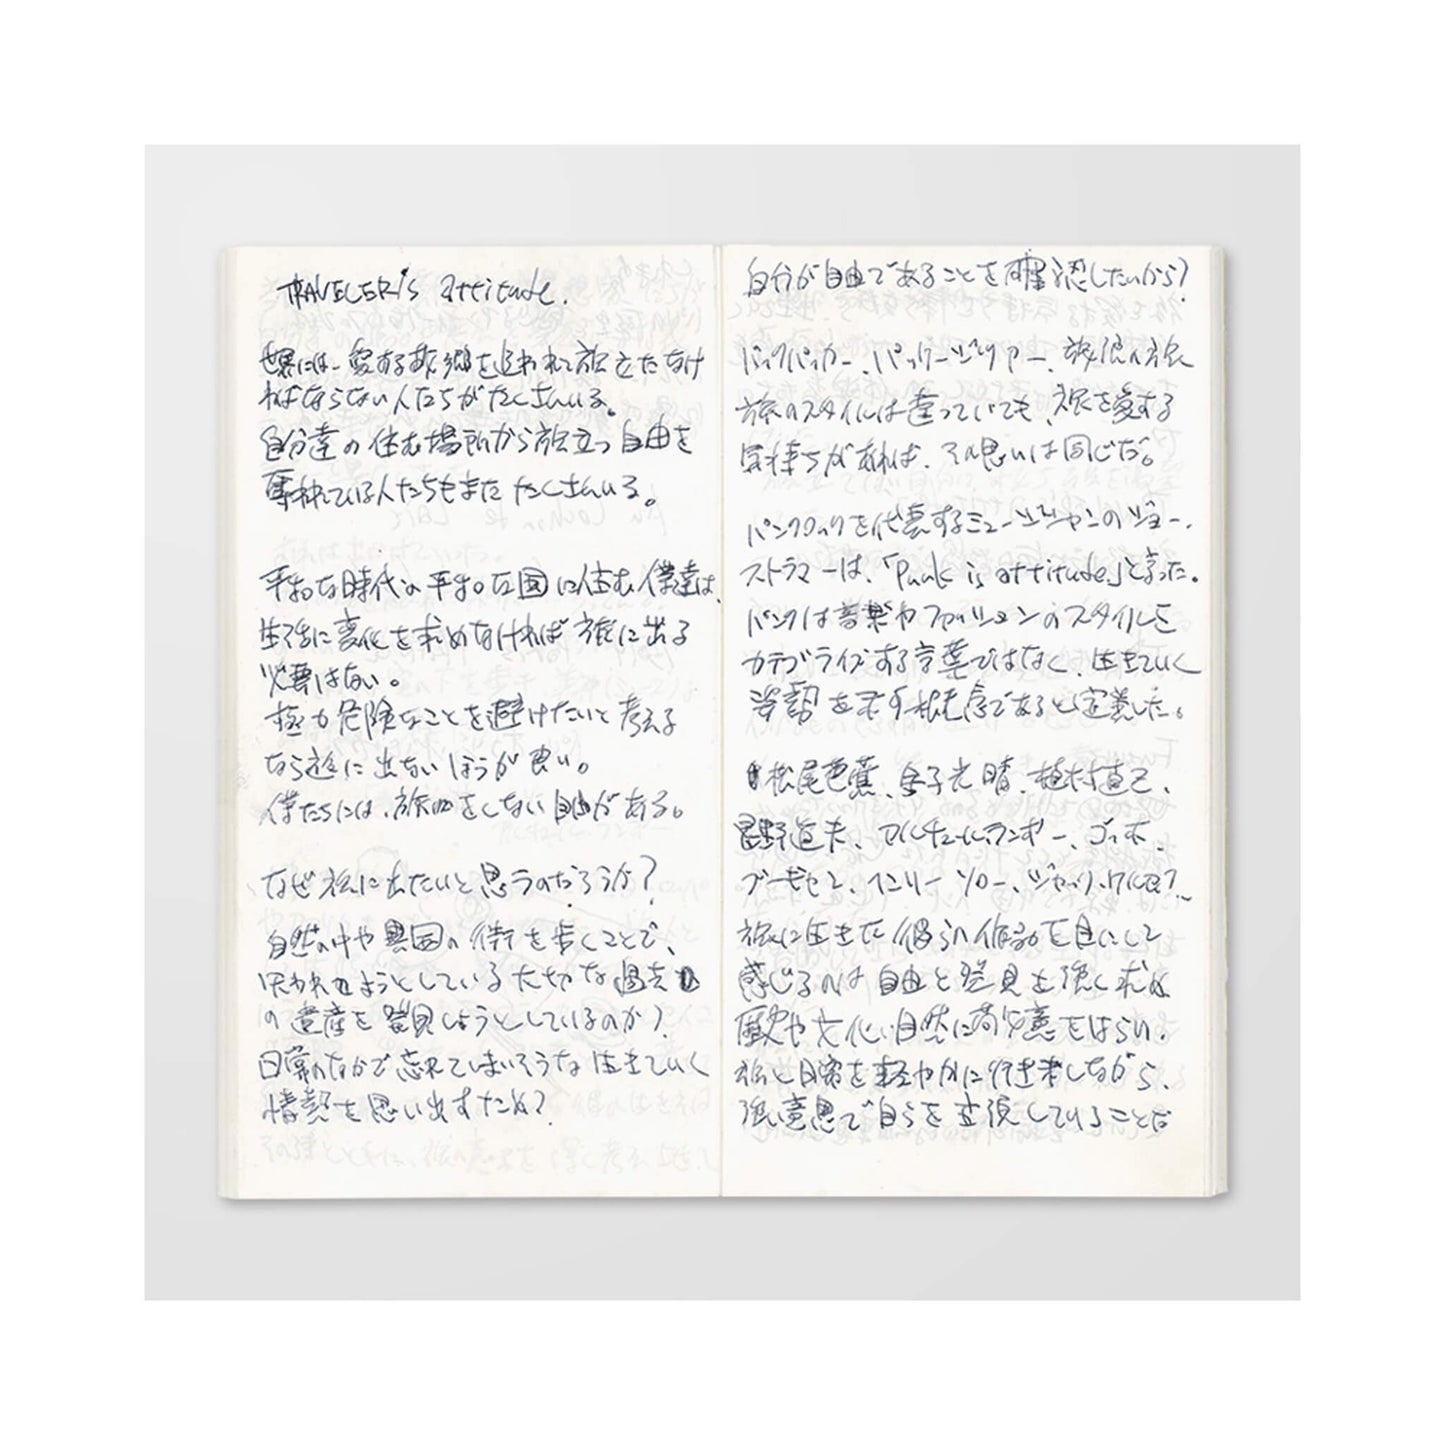 TRAVELER'S attitude.
世界には、愛する故郷を追われて旅立たなけ
ればならない人たちがたくさんいる。
自分達の住む場所から旅立つ自由を
奪われている人たちもまたたくさんいる。
平和な時代の平和な国に住む僕達は、
生活に変化を求めなければ旅に出る
必要はない。
極力危険なことを避けたいと考える
なら旅に出ないほうが良い。
僕たちには、旅をしない自由がある。
なぜ旅に出たいと思うのだろうか?
自然の中や異国の街を歩くことで、
失われようとしている大切な過去
の遺産を発見しようとしているのか?
日常のなかで忘れてしまいそうな生きていく
情熱を思い出すため?
自分が自由であることを確認したいから?
バックパッカー、パッケージツアー、旅
旅のスタイルは違っていても、旅を愛する
気持ちがあれば、その思いは同じだ。
パンクロックを代表するミュージシャンのジョー・
ストラマーは、「Punk is attitude」と言った。
パンクは音楽やファッションのスタイルを
カテゴライズする言葉ではなく、生きていく
姿勢を示す概念であると定義した。
松尾芭蕉、金子光晴、植村直己、
星野道夫、アルチュール・ランボー、ゴッホ、
ゴーギャン、ヘンリー・ソロー、ジャック・ケルアック
旅に生きた彼らの作品を目にして
感じるのは自由と発見を強く求め
歴史や文化、自然に敬意をはらい、
旅と日常を軽やかに行き来しながら、
強い意思で自らを主張していることだ